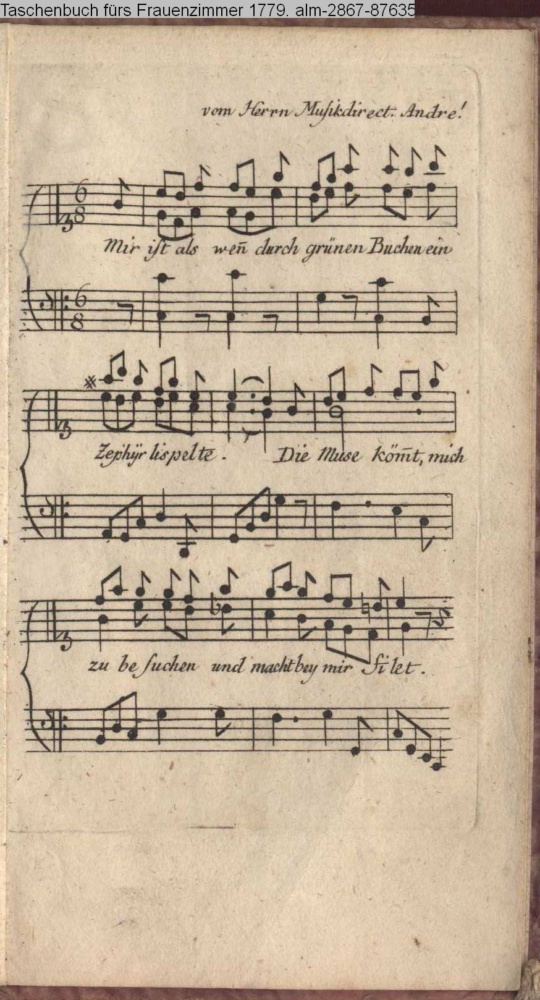 Taschenbuch fürs Frauenzimmer 1779. alm-2867-87635
vom Herrn Musikdirect. Andre!
6
8
Mir ist als weñ durch grünen Buchen ein
6
8
Zephÿr lispelte. Die Muse köm̃t, mich
zu besuchen und macht bey mir Filet.